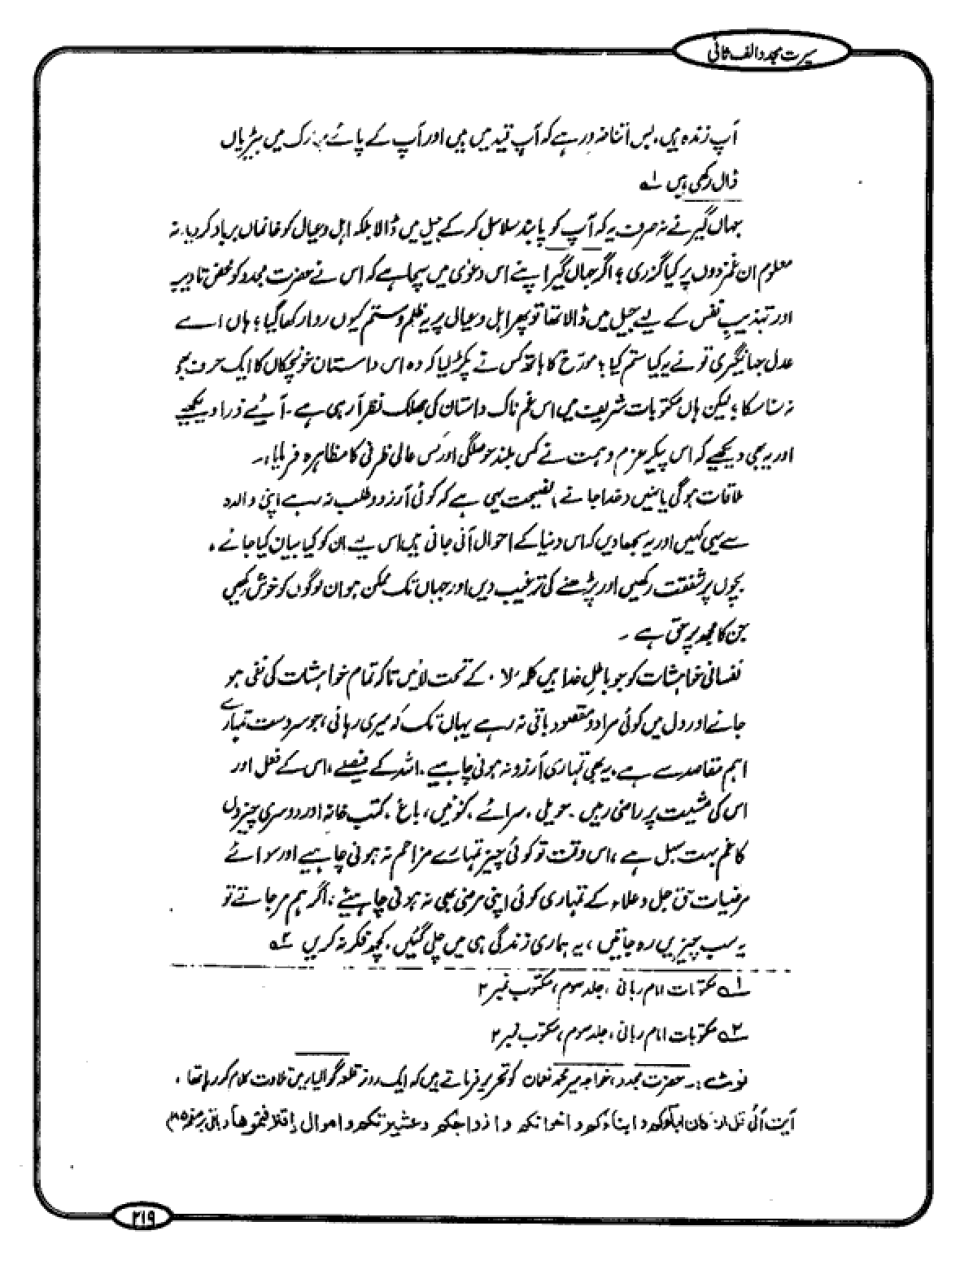 سیرت مجدد الف ثانی
آپ زندہ ہیں، بس اتنا ضرور ہے کہ آپ قید میں ہیں اور آپ کے پائے مبارک میں بیڑیاں
ڈال رکھی ہیں ۱؎
جہاں گیر نے نہ صرف یہ کہ آپ کو پابند سلاسل کر کے جیل میں ڈالا بلکہ اہل و عیال کو خانماں برباد کر دیا، نہ
معلوم ان غمزدوں پر کیا گزری؟ اگر جہاں گیر اپنے اس دعویٰ میں سچا ہے کہ اس نے حضرت مجدد کو محض تادیب
اور تہذیبِ نفس کے لیے جیل میں ڈالا تھا تو پھر اہل و عیال پر یہ ظلم و ستم کیوں روا رکھا گیا؟ ہاں اے
عدل جہانگیری تو نے یہ کیا ستم کیا؟ مورخ کا ہاتھ کس نے پکڑ لیا کہ وہ اس داستان خونچکاں کا ایک حرف بھی
نہ سنا سکا؟ لیکن ہاں مکتوبات شریف میں اس غم ناک داستان کی جھلک نظر آرہی ہے۔ آئیے ذرا دیکھیے
اور یہ بھی دیکھیے کہ اس پیکر عزم و ہمت نے کس بلند حوصلگی اور کس عالی ظرفی کا مظاہرہ فرمایا:۔
ملاقات ہوگی یا نہیں خدا جانے، نصیحت یہی ہے کہ کوئی آرزو و طلب نہ رہے اپنی والدہ
سے یہی کہیں اور یہ سمجھا دیں کہ اس دنیا کے احوال آنی جانی ہیں اس لیے ان کو کیا بیان کیا جائے۔
بچوں پر شفقت رکھیں اور پڑھنے کی ترغیب دیں اور جہاں تک ممکن ہو ان لوگوں کو خوش رکھیں
جن کا مجھ پر حق ہے۔
نفسانی خواہشات کو جو باطل خدا ہیں کلمہ "لا" کے تحت لائیں تاکہ تمام خواہشات کی نفی ہو
جائے اور دل میں کوئی مراد و مقصود باقی نہ رہے یہاں تک کہ میری رہائی، جو سردست تمہارے
اہم مقاصد سے ہے، یہ بھی تمہاری آرزو نہ ہونی چاہیے۔ اللہ کے فیصلے، اس کے فعل اور
اس کی مشیت پر راضی رہیں۔ حویلی، سرائے، کنوئیں، باغ، کتب خانہ اور دوسری چیزوں
کا غم بہت سہل ہے، اس وقت تو کوئی چیز تمہارے مزاحم نہ ہونی چاہیے اور سوائے
مرضیات حق جل و علاء کے تمہاری کوئی اپنی مرضی بھی نہ ہونی چاہیئے، اگر ہم مر جاتے تو
یہ سب چیزیں رہ جاتیں، یہ ہماری زندگی ہی میں چلی گئیں۔ کچھ فکر نہ کریں ۲؎
۱؎ مکتوبات امام ربانی، جلد سوم، مکتوب نمبر ۲
۲؎ مکتوبات امام ربانی، جلد سوم، مکتوب نمبر ۲
نوٹ:۔ حضرت مجدد، خواجہ میر محمد نعمان کو تحریر فرماتے ہیں کہ ایک روز قلعہ گوالیار میں تلاوت کلام کر رہا تھا،
آیت آئی قل ان کان اباؤکم و ابناؤکم و اخوانکم و ازواجکم و عشیرتکم و اموال اقترفتموھا (باقی بر صفحہ
۲۱۹